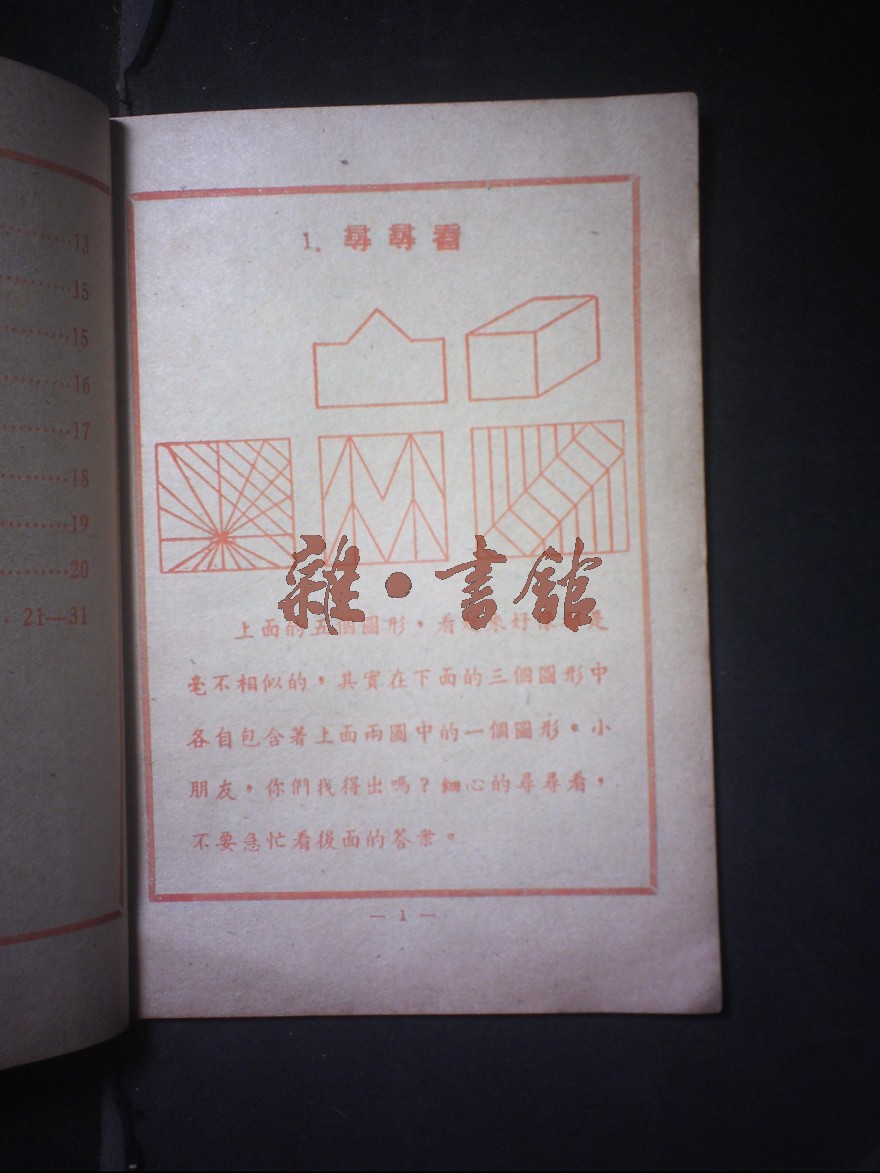 13
15
15
16
17
18
19
20
21—31
1. 尋尋看
雜·書館
上面的五個圖形，看
是
毫不相似的，其實在下面的三個圖形中
各自包含著上面兩圖中的一個圖形。小
朋友，你們找得出嗎？細心的尋尋看，
不要急忙看後面的答案。
— 1 —